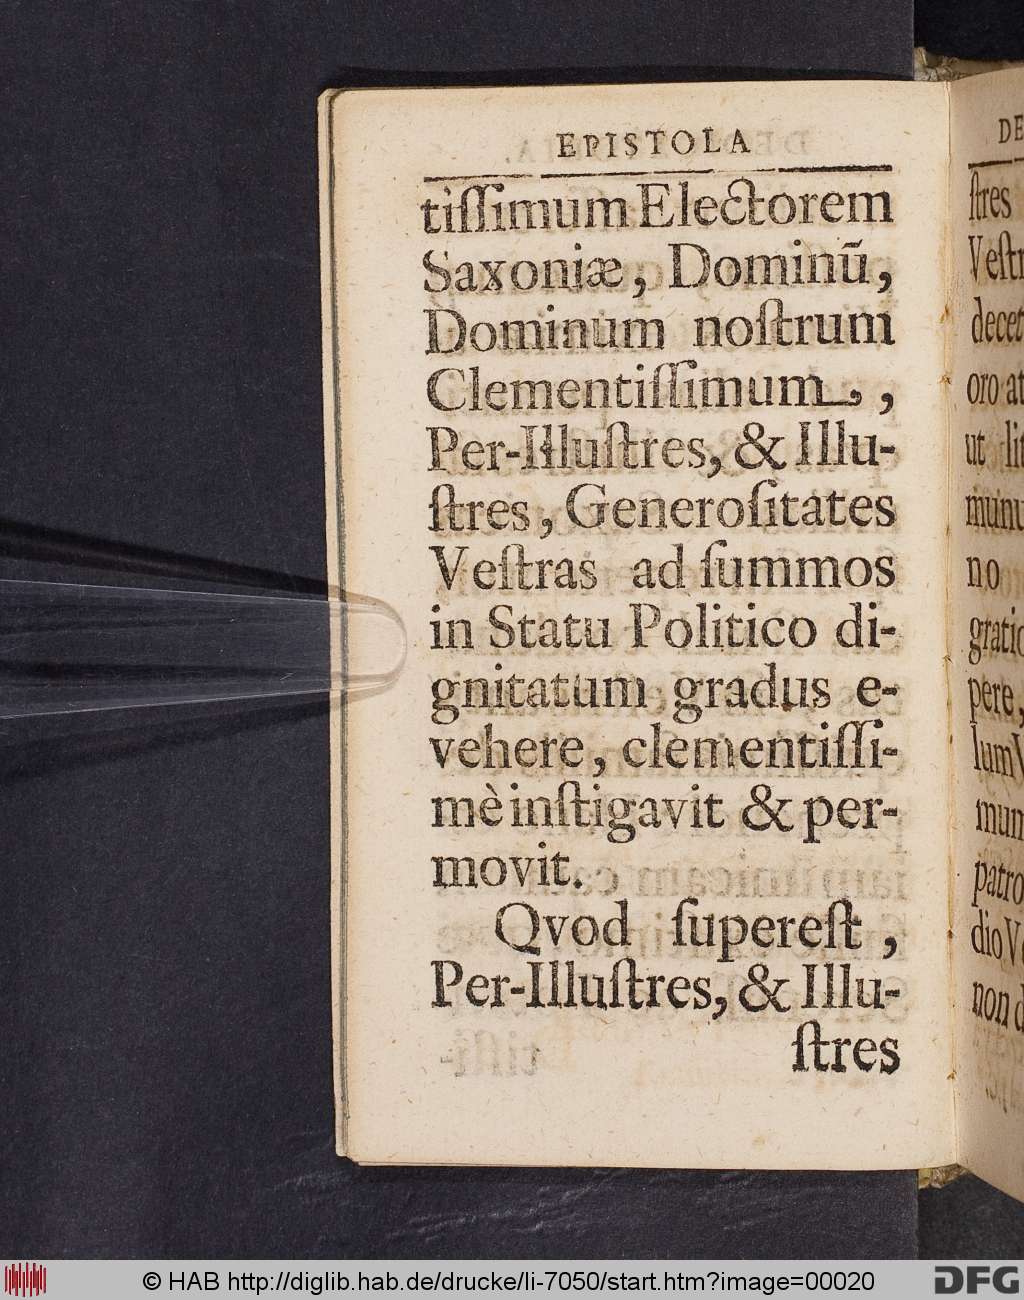 EPISTOLA
tiſſimum Electorem
Saxoniæ, Dominū,
Dominum noſtrum
Clementiſſimum,
Per-Illuſtres, & Illu-
ſtres, Generoſitates
Veſtras ad ſummos
in Statu Politico di-
gnitatum gradus e-
vehere, clementiſſi-
mè inſtigavit & per-
movit.
Qvod ſupereſt,
Per-Illuſtres, & Illu-
ſtres
DE
ſtres
Veſtr
decet
oro at
ut lit
munu
no
gratio
pere,
lum V
mun
patro
dio Ve
non d
© HAB http://diglib.hab.de/drucke/li-7050/start.htm?image=00020
DFG